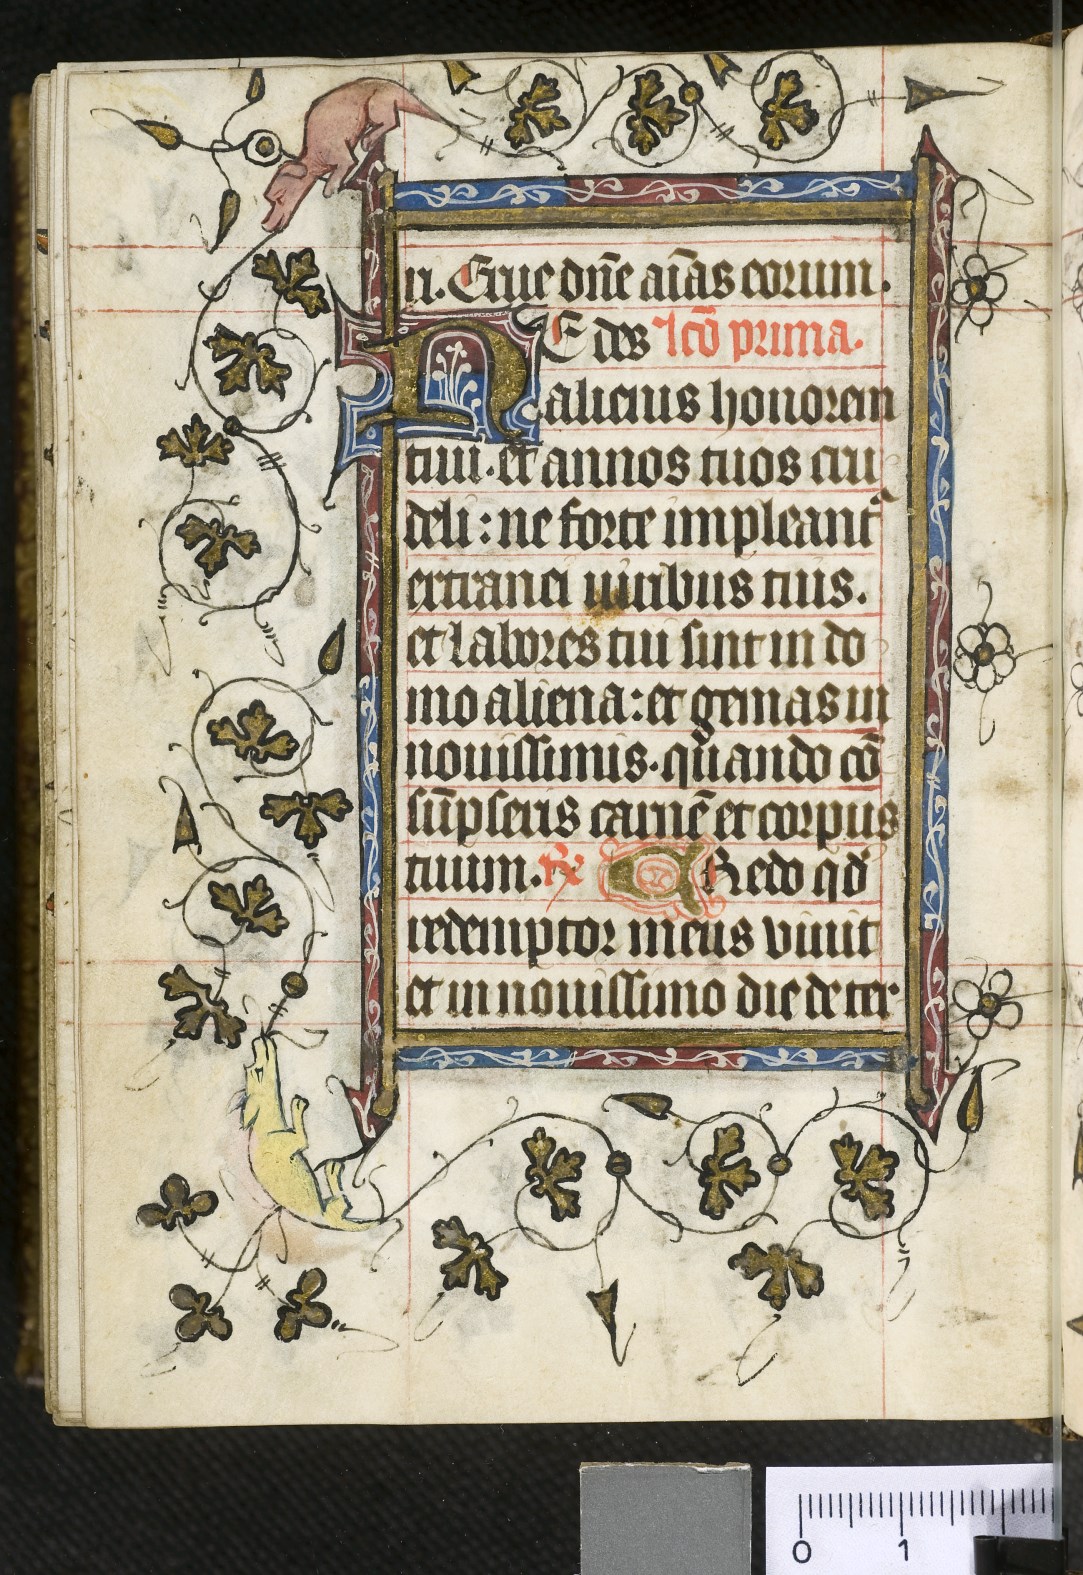 ri. Erue dn̄e aīas eorum.
NE des lcō prima.
alienis honorem
tuū. et annos tuos cru
deli: ne forte impleant᷑
extranei uiribus tuis.
et labores tui sint in do
mo aliena: et gemas in
nouissimis. quando cō
sūpseris carnē et corpus
tuum. ℟ CRedo qd̓
redemptor meus viuit
et in nouissimo die de ter
0 1